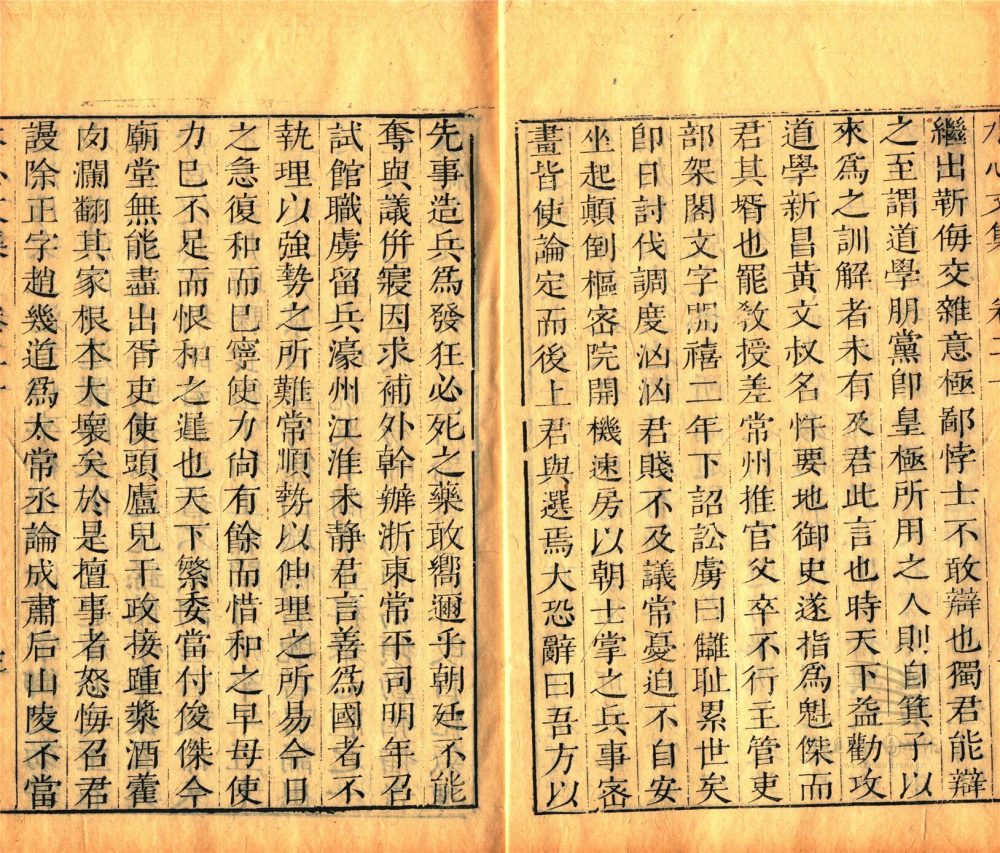 繼出蘄侮交雜意極鄙悖士不敢辯也獨君能辯
之至謂道學朋黨卽皇極所用之人則自箕子以
來爲之訓解者未有及君此言也時天下益勸攻
道學新昌黃文叔名忤要地御史遂指爲魁傑而
君其壻也罷敎授差常州推官父卒不行主管吏
部架閣文字開禧二年下詔訟虜曰讎耻累世矣
卽日討伐調度汹汹君賤不及議常憂迫不自安
坐起顛倒樞密院開機速房以朝士掌之兵事密
畫皆使論定而後上君與選焉大恐辭曰吾方以
先事造兵爲發狂必死之藥敢嚮邇乎朝廷不能
奪與議併寢因求補外幹辦浙東常平司明年召
試館職虜留兵濠州江淮未静君言善爲國者不
執理以強勢之所難常順勢以伸理之所易今日
之急復和而已寧使力尙有餘而惜和之早毋使
力已不足而恨和之遲也天下繁委當付俊傑今
廟堂無能盡出胥吏使頭廬兒干政接踵漿酒藿
肉瀾翻其家根本大壞矣於是檀事者怒悔召君
謾除正字趙幾道爲太常丞論成肅后山陵不當